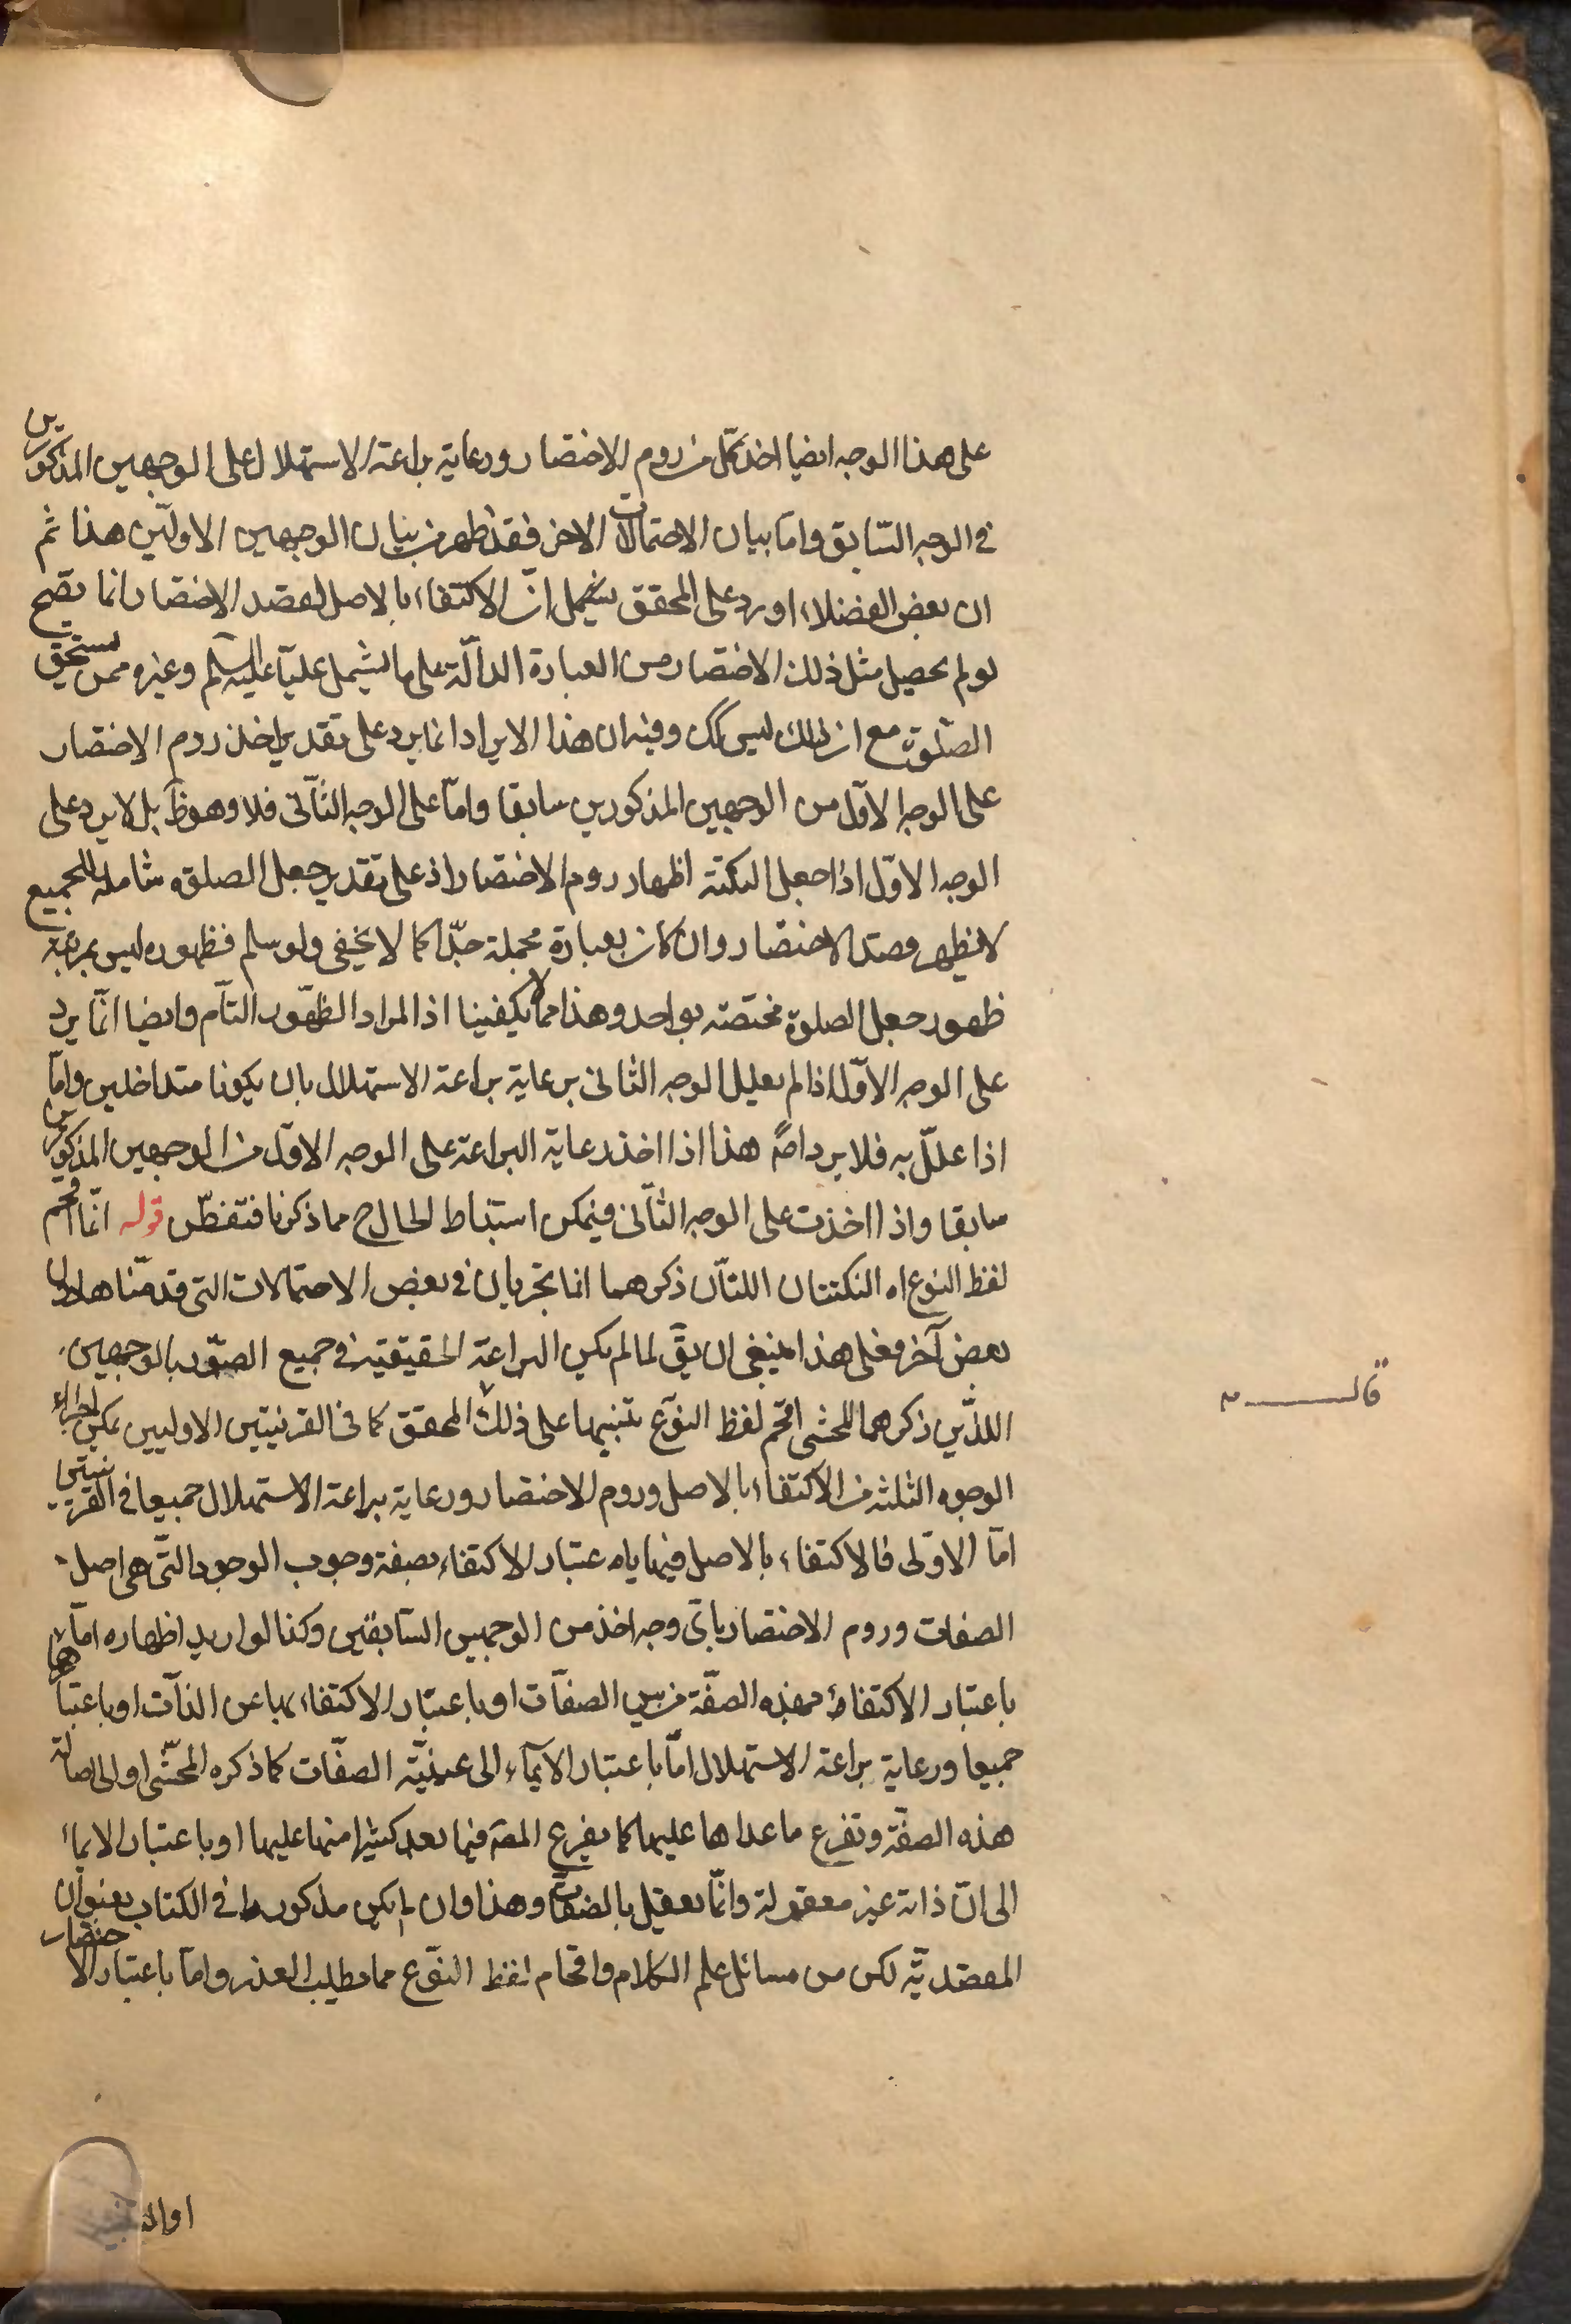 على هذا الوجه ايضا اخذ كل من روم الاختصار ورعاية براعة الاستهلال على الوجهين المذكورين
في الوجه السّابق وامّا بيان الاحتمالات الاخر فقد ظهر من بيان الوجهين الاولين هذا ثم
ان بعض الفضلاء اورد على المحقق انّ الاكتفاء بالاصل لقصد الاختصار انما يصح
لو لم يحصل مثل ذلك الاختصار من العبارة الدالّة على ما يشمل عليّا عليه السلم وغيره ممن يستحق
الصّلوة مع ان ذلك ليس كك وفيه ان هذا الايراد انما يرد على تقدير اخذ روم الاختصار
على الوجه الاوّل من الوجهين المذكورين سابقا وامّا على الوجه الثّاني فلا وهو ظ بل لا يرد على
الوجه الاوّل اذا جعل النكتة اظهار روم الاختصار اذ على تقدير جعل الصلوة شاملة للجميع
لا يظهر قصد الاختصار وان كان بعبارة مجملة جدّا كما لا يخفى ولو سلم فظهوره ليس بمرتبة
ظهور جعل الصلوة مختصّة بواحد وهذا مما يكفينا اذ المراد الظهور التّام وايضا انّما يرد
على الوجه الاوّل اذا لم يعلل الوجه الثانى برعاية براعة الاستهلال بان يكونا متداخلين وامّا
اذا علّل به فلا يرد اصلا هذا اذا اخذ رعاية البراعة على الوجه الاوّل من الوجهين المذكورين
سابقا واذا اخذت على الوجه الثّانى فيمكن استنباط الحال ح مما ذكرنا فتفطّن قوله انّما اقحم
لفظ النوع اه النكتتان اللتان ذكرهما انما تجريان في بعض الاحتمالات التي قدمّناها دون
بعض آخر فعلى هذا ينبغي ان يقّ لما لم يكن البراعة الحقيقية في جميع الصّور بالوجهين
اللذين ذكرهما المحشى اقحم لفظ النوع تنبيها على ذلك المحقق كما في القرينتين الاوليين يمكن اجراء
الوجوه الثلثة من الاكتفاء بالاصل وروم الاختصار ورعاية براعة الاستهلال جميعا في القرينتين
امّا الاولى فالاكتفاء بالاصل فيها باعتبار الاكتفاء بصفة وجوب الوجود التّي هى اصل
الصفات وروم الاختصار باىّ وجه اخذ من الوجهين السّابقين وكذا لو اريد اظهاره امّا
باعتبار الاكتفاء بهذه الصفّة من بين الصفّات او باعتبار الاكتفاء بها عن الذّات او باعتبارهما
جميعا ورعاية براعة الاستهلال امّا باعتبار الايماء الى عينيّة الصفّات كما ذكره المحشّى او الى اصالة
هذه الصفّة وتفرع ما عداها عليها كما يفرع المص فيما بعد كثيرا منها عليها او باعتبار الايماء
الى انّ ذاته غير معقولة وانّما يعقل بالصّفات وهذا وان لم يكن مذكورا في الكتاب بعنوان
المقصديّة لكن من مسائل علم الكلام واقحام لفظ النوّع مما يطلب العذر وامّا باعتبار الاختصار